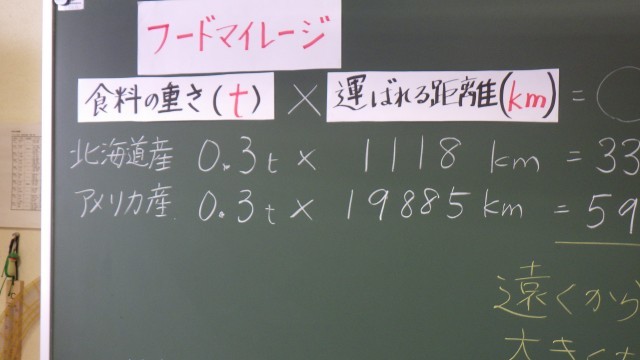 フードマイレージ
食料の重さ(t) × 運ばれる距離(km) = ○
北海道産 0.3t × 1118 km = 33
アメリカ産 0.3t × 19885 km = 59
遠くから
大きく